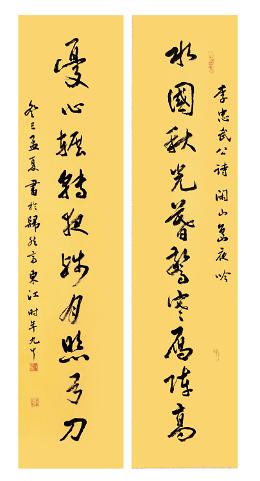 水國秋光暮驚寒雁陣高
李忠武公詩 閑山島夜吟
憂心輾轉夜殘月照弓刀
癸巳孟夏書於 東江時年九